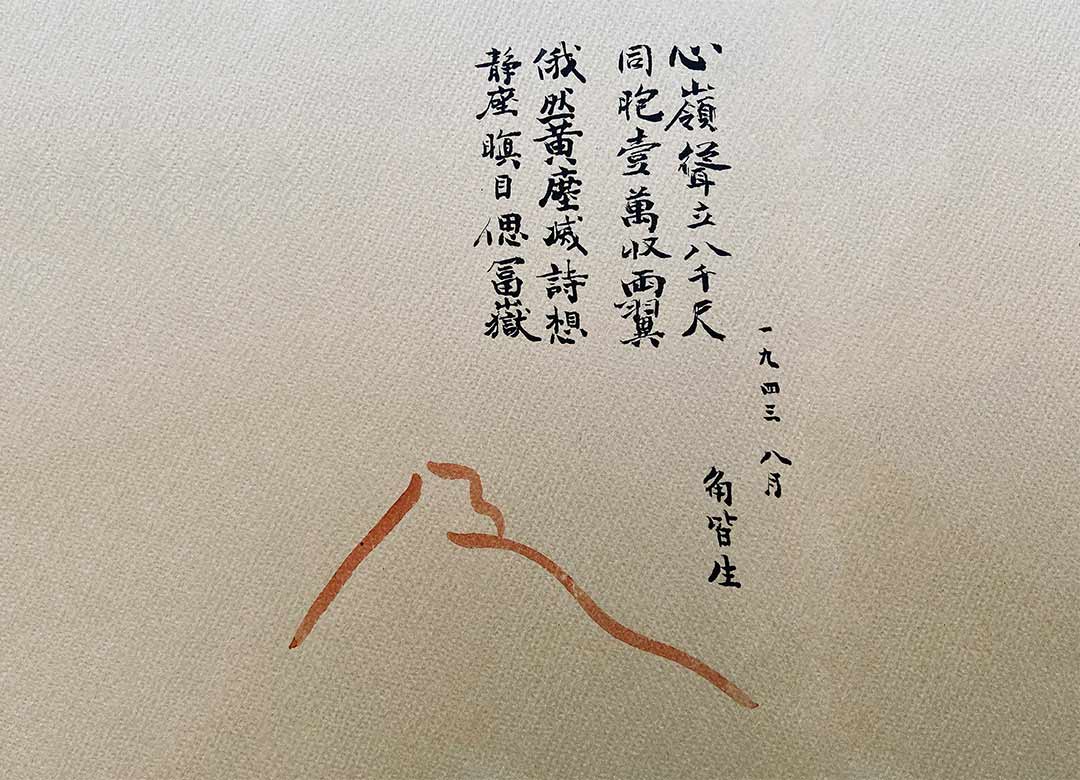 心嶺聳立八千尺
同胞壹萬収兩翼
俄然黄塵滅詩想
静座瞑目偲冨嶽
一九四三 八月
角皆生